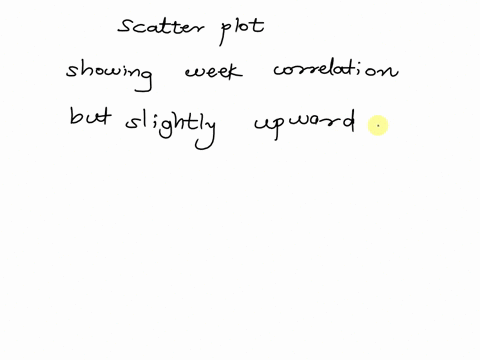 scatter plot
showing week correlation
but slightly upward